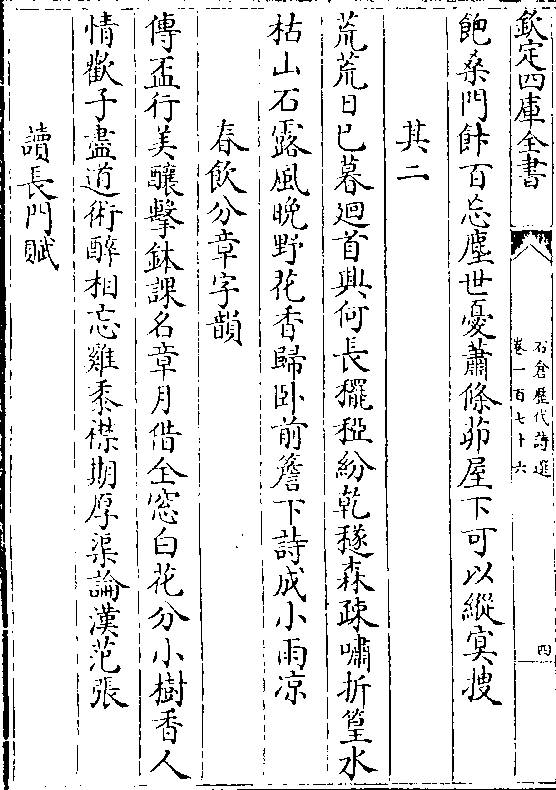 欽定四庫全書
石倉歷代詩選
卷一百七十六
四
飽桑門飰百忘塵世憂蕭條茆屋下可以縱冥搜
其二
荒荒日已暮迴首興何長䆉稏紛乾穟森疎嘯折篁水
枯山石露風晚野花香歸卧前簷下詩成小雨凉
春飲分章字韻
傳盃行美釀擊鉢課名章月借全窓白花分小樹香人
情歡子盡道術醉相忘雞黍襟期厚渠論漢范張
讀長門賦